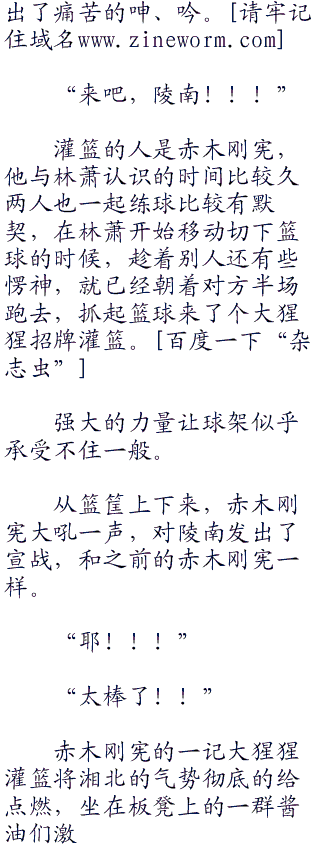 出了痛苦的呻、吟。[请牢记
住域名www.zineworm.com]
“来吧，陵南！！！”
灌篮的人是赤木刚宪，
他与林萧认识的时间比较久
两人也一起练球比较有默
契，在林萧开始移动切下篮
球的时候，趁着别人还有些
愣神，就已经朝着对方半场
跑去，抓起篮球来了个大猩
猩招牌灌篮。[百度一下“杂
志虫”]
强大的力量让球架似乎
承受不住一般。
从篮筐上下来，赤木刚
宪大吼一声，对陵南发出了
宣战，和之前的赤木刚宪一
样。
“耶！！！”
“太棒了！！”
赤木刚宪的一记大猩猩
灌篮将湘北的气势彻底的给
点燃，坐在板凳上的一群酱
油们激